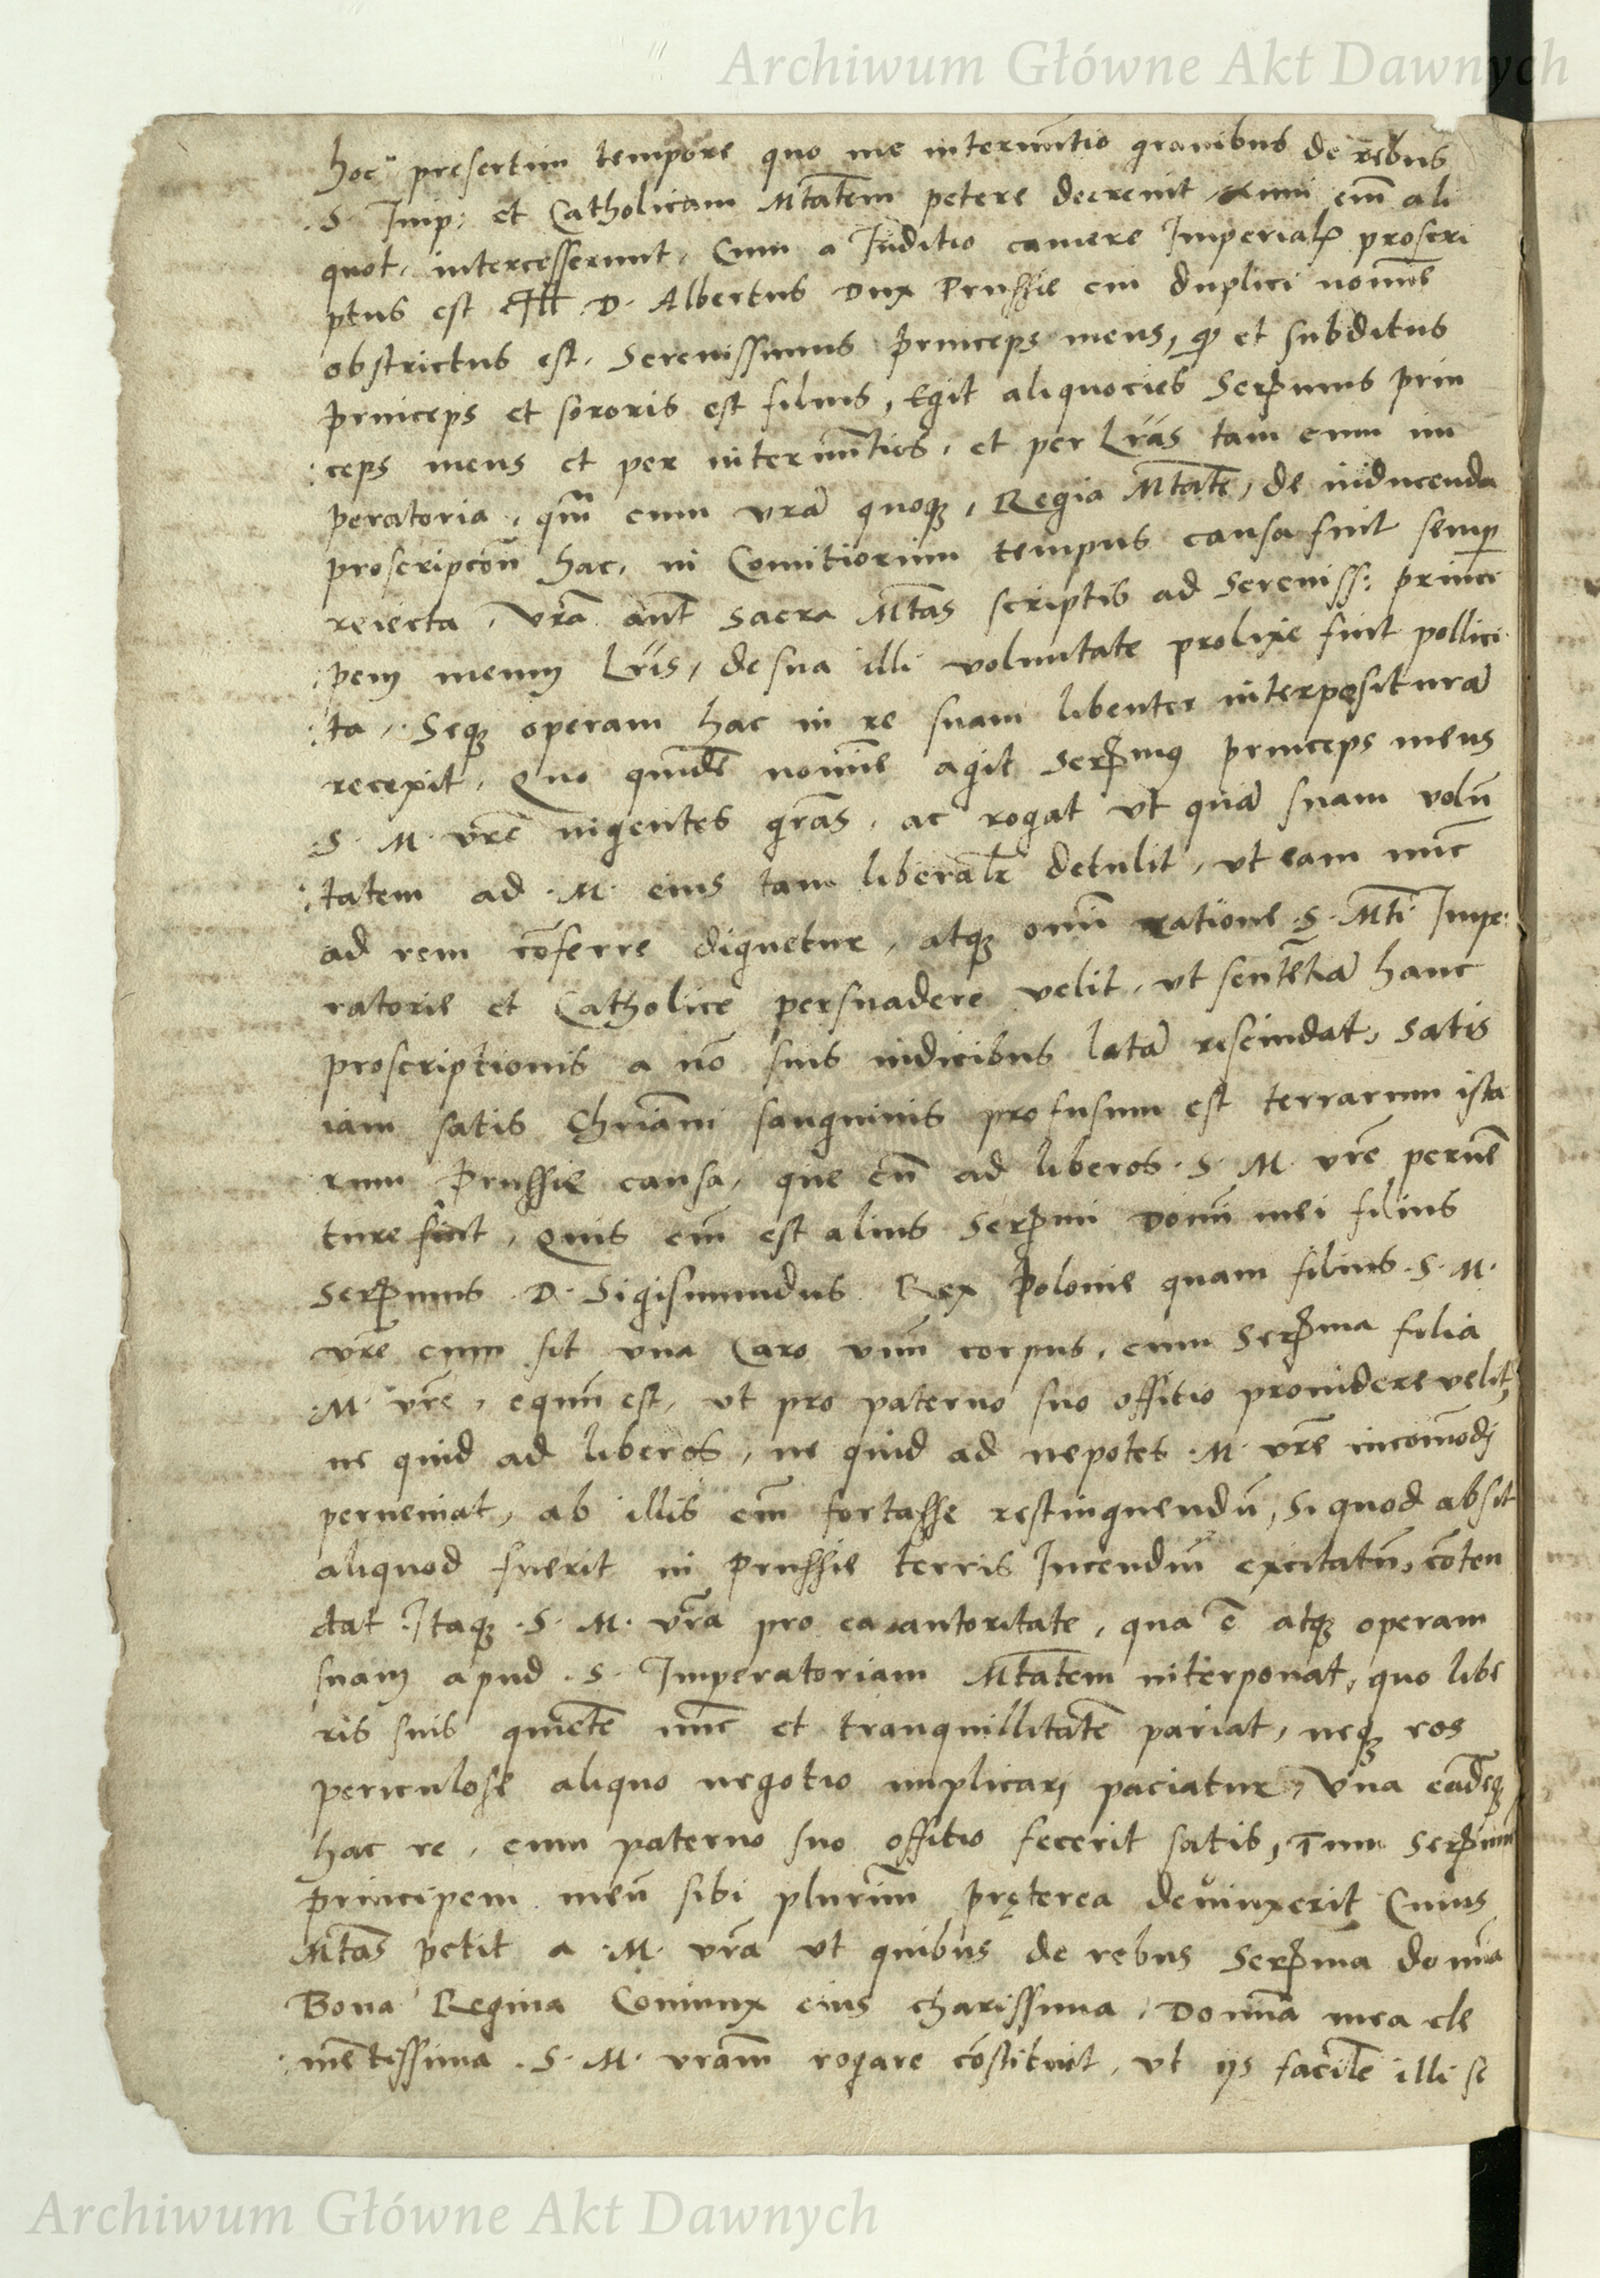 Archiwum Główne Akt Dawnych
hoc presertim tempore quo me internuntio gravibus de rebus
S. Imp: et Catholicam Mtatem petere decrevit Anni em̄ ali
quot, intercesserunt, Cum a Juditio camere Imperial proscri
ptus est Ill D. Albertus Dux Prussie cui duplici nomīe
obstrictus est, Serenissimus Princeps meus, qd et subditus
princeps et sororis est filius, Egit aliquocies Serpmus prin
ceps meus et per internūtios, et per Lrās tam cum im
peratoria, qm̄ cum vrā quoqȝ, Regia Mtate, de inducenda
proscripcōn hac, in Comitiorum tempus causa fuit semp
reiecta, vrā aut̄ sacra Mtas scriptis ad Sereniss: princi
pem meum Lrīs, de sua illi voluntate prolixe fuit pollici
ta, Seqȝ operam hac in re suam libenter interpositurā
recepit, Quo quidē nomīe agit Serpmus princeps meus
S. M. vrē ingentes grās, ac rogat ut quā suam volūn
tatem ad M. eius tam liberalr detulit, ut eam nūc
ad rem cōferre dignetur, atqȝ omī ratione S. Mti Impe
ratorie et Catholice persuadere velit, ut sentētiā hanc
proscriptionis a nō suis iudicibus latā rescindat, Satis
iam satis Chriāni sanguinis profusum est terrarum ista
rum Prussie causa, que cū ad liberos S. M. vrē pervē
ture sint, Quis em̄ est alius Serpmi Domī mei filius
Serpmus D. Sigismundus Rex Polonie quam filius S. M.
vrē cum sit una Caro unū corpus, cum Serpma filia
M. vrē, equū est, ut pro paterno suo offitio providere velit,
ne quid ad liberos, ne quid ad nepotes M. vrē incōmodi
perveniat, ab illis em̄ fortasse restinguendū, Si quod absit
aliquod fuerit in Prussie terris Incendiū excitatū, cōten
dat Itaqȝ S. M. vrā pro ea autoritate, qua ē atqȝ operam
suam apud S. Imperatoriam Mtatem interponat, quo libe
ris suis quietē nūc et tranquillitatē pariat, neqȝ eos
periculose aliquo negotio implicari paciatur, Una eādeqȝ
hac re, cum paterno suo offitio fecerit satis, Tum Serpmum
principem meū sibi plurimū pręterea devinxerit Cuius
Mtas petit a M. vrā ut quibus de rebus Serpma domīa
Bona Regina Coniunx eius charissima, Domīa mea cle
mētissima S. M. vram rogare cōstituit, ut iis facile illi se
Archiwum Główne Akt Dawnych